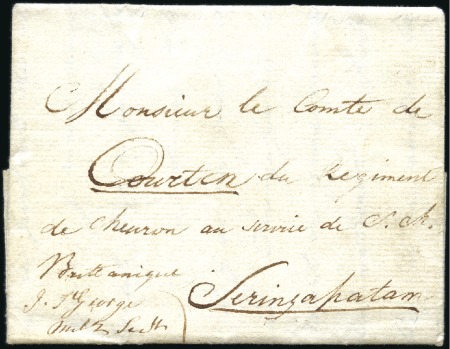 Monsieur le Comte de
Courten du Regiment
de Cheuron au service de S. M.
Brittanique
J. St George
Seringapatam